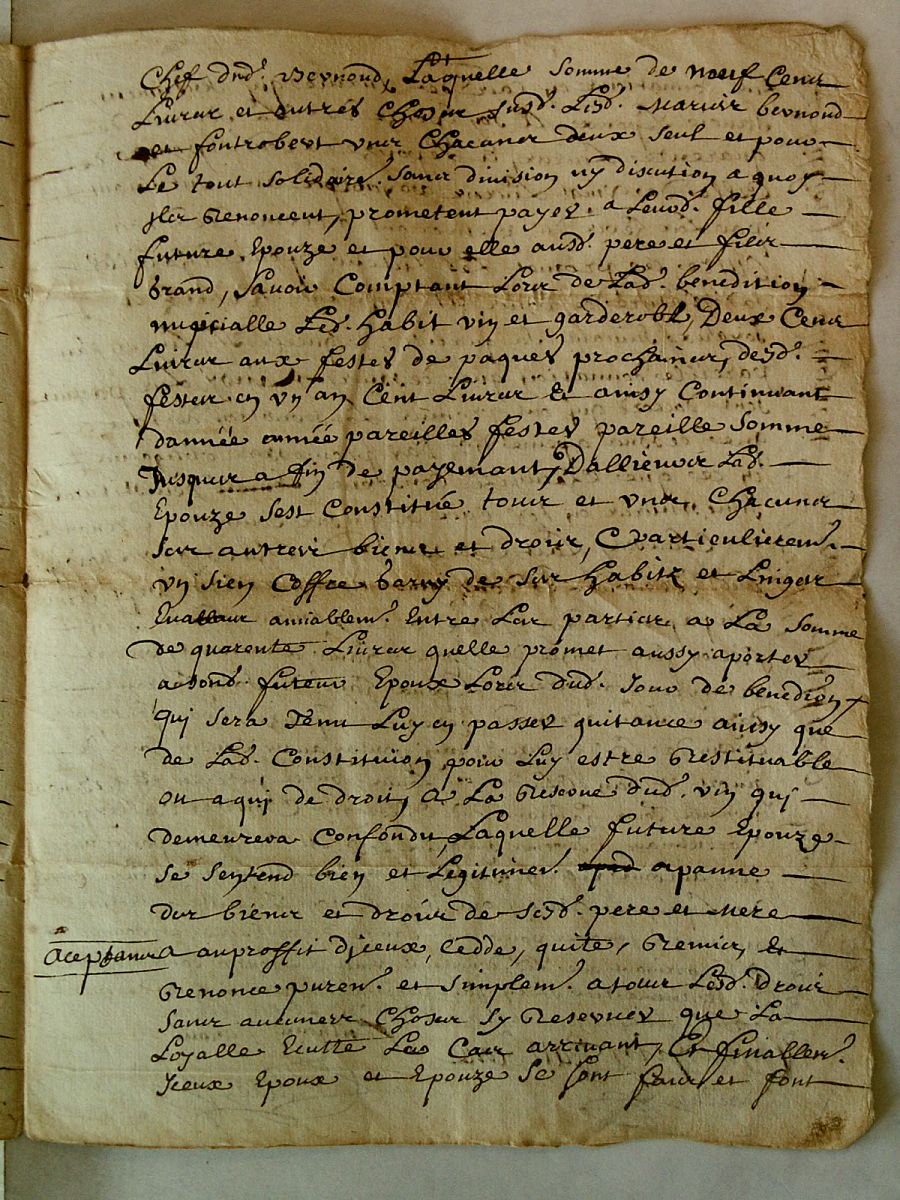 Chef dud. Beynond, Laquelle somme de neuf Cens
Livres et autres choses susd. Lesd. mariés beynond
et fontrobert unes chacunes deux seul et pour
Le tout solidaire sans division ny discution a quoy
ils Renoncent, prometent payer a Leurd. fille
future Epouze et pour elle ausd. pere et fils
brand, savoir Comptant Lors de Lad. benedition
nupcialle Led. habit vin et garderobe, Deux Cens
Livres aux festes de paques prochaines, desd.
festes en un an Cent Livres et ainsy Continuant
dannée année pareilles festes pareille somme
Jusques a fin de payemant, Dallieurs Lad.
Epouze sest Constitué tous et unes chacunes
ses autres biens et droits, Particulierem.
un sien coffre garny de ses habits et Linges
amiablem. Entre Les parties a La somme
de quarente Livres quelle promet aussy aporter
a sond. futeur Epoux Lors dud. Jour de bened
qui sera Tenu Luy en passer quitance ainsy que
de Lad. Constitution pour Luy estre Restituable
ou a qui de droit, a La Reserve dud. vin qui
demeurera Confondu, Laquelle future Epouze
se sentend bien et Legitimem. apanne
des biens et droits de sesd. pere et mere
aceptans a auproffit djceux, cedde, quite, Remier, et
Renonce purem. et simplem. a tous Lesd. Droits
sans aucunes choses sy Reserver que La
Loyalle Les Cas arrivant, Et finallem.
Jceux Epoux et Epouze se sont fait et font